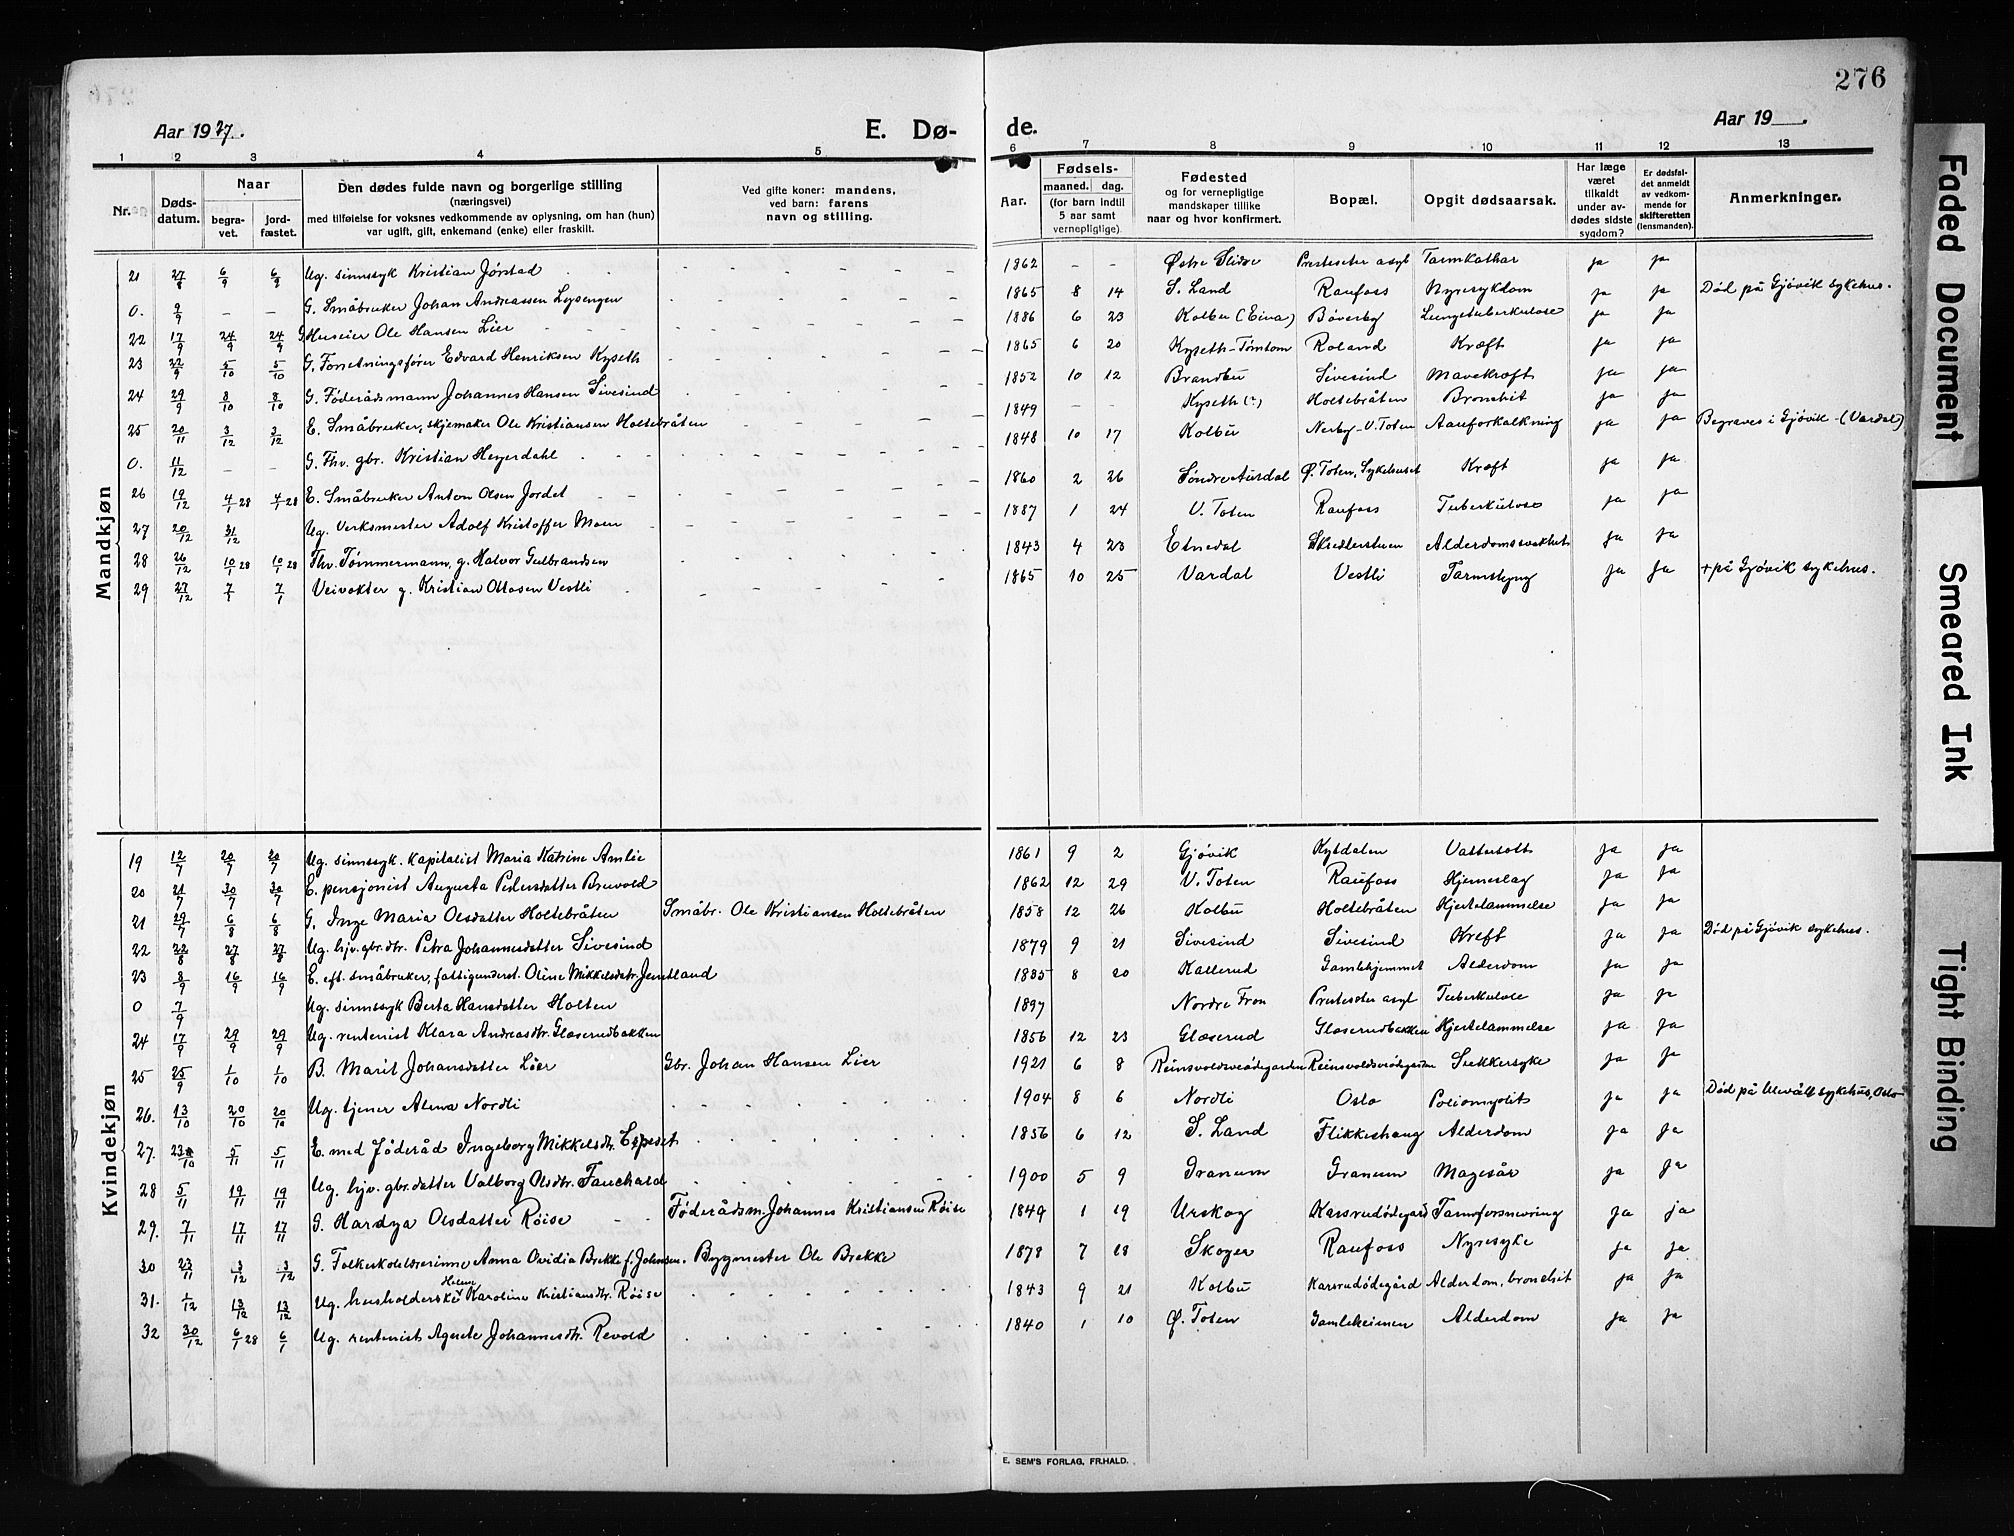 276
Aar 1927.
E. Dø-
de.
Aar 19 .
1 2 3 4 5 6 7 8 9 10 11 12 13
Nr.
Døds-datum.
Naar
begra-vet.
jord-fæstet.
Den dødes fulde navn og borgerlige stilling
(næringsvei)
med tilføielse for voksnes vedkommende av oplysning, om han (hun)
var ugift, gift, enkemand (enke) eller fraskilt.
Ved gifte koner: mandens,
ved barn: farens
navn og stilling.
Aar.
Fødsels-
maaned. dag.
(for barn indtil
5 aar samt
vernepligtige).
Fødested
og for vernepligtige
mandskaper tillike
naar og hvor konfirmert.
Bopæl.
Opgit dødsaarsak.
Har læge
været
tilkaldt
under av-
dødes sidste
sygdom?
Er dødsfal-
det anmeldt
av vedkom-
mende for
skifteretten
(lensmanden).
Anmerkninger.
Mandkjøn
21 27/8 6/9 6/9 Ug. sinnssyk Kristian Jørstad 1862 - - Østre Slidre Presteseter asyl Tarmkathar ja ja
0. 9/9 - - G. Småbruker Johan Andreassen 1865 8 14 S. Land Raufoss Nyresykdom ja ja Død på Gjøvik sykehus.
22 17/9 24/9 24/9 G. Huseier Ole Hansen Lier 1886 6 23 Kolbu (Eina) Bøverby Lungetuberkulose ja ja
23 22/9 5/10 5/10 G. Forretningsfører Edvard Henriksen Kyseth 1865 6 20 Kyseth-Tømtom Roland Kræft ja ja
24 29/9 8/10 8/10 G. Føderådsmann Johannes Hansen Sivesind 1852 10 12 Brandbu Sivesind Mavekræft ja ja
25 20/11 3/12 3/12 E. Småbruker, skjemaker Ole Kristiansen Holtebråten 1849 - - Kyseth (?) Holtebråten Bronchit ja ja
0. 11/12 - - G. Fhv. gbr. Kristian Heyerdahl 1848 10 17 Kolbu Nerby - V. Toten Aareforkalkning ja ja Begraves i Gjøvik - (Vardal)
26 19/12 4/1 28 4/1 28 E. Småbruker Anton Olsen Jordet 1860 2 26 Søndre Aurdal Ø. Toten, Sykehuset Kræft ja ja
27 20/12 31/12 Ug. Verksmester Adolf Kristoffer Moen 1887 1 24 V. Toten Raufoss Tuberkulose ja ja
28 26/12 10/1 28 10/1 28 Fhv. Tømmermann, g. Halvor Gulbrandsen 1843 4 23 Etnedal Skredderstuen Alderdomssvakhet ja ja
29 27/12 7/1 7/1 Veivokter g. Kristian Olosen Vestli 1865 10 25 Vardal Vestli Tarmslyng ja ja + på Gjøvik sykehus.
Kvindekjøn
19 12/7 20/7 20/7 Ug. sinnssyk. kapitalist Maria Katrine Amlie 1861 9 2 Gjøvik Kybdalen Vattersott ja ja
20 21/7 30/7 30/7 E. pensjonist Augusta Pedersdatter Bruvold 1862 12 29 V. Toten Raufoss Hjerneslag ja ja
21 29/7 6/8 6/8 G. Inge Maria Olsdatter Holtebråten Småbr. Ole Kristiansen Holtebråten 1858 12 26 Kolbu Holtebråten Hjertelammelse ja ja
22 22/8 27/8 27/8 Ug. hjv. gbr. dtr. Petra Johannesdatter Sivesind 1879 9 21 Sivesind Sivesind Kreft ja ja Død på Gjøvik sykehus.
23 8/9 16/9 16/9 E. eft. småbruker, fattigunderst. Oline Mikkelsdtr. Jemtland 1835 8 20 Kallerud Gamlehjemmet Alderdom ja ja
0 7/9 Ug. sinnssyk Berta Hansdatter Holten 1897 Nordre Fron Presteseter asyl Tuberkulose ja ja
24 17/9 29/9 29/9 Ug. rentenist Klara Andreasdtr. Glæserudbakken 1856 12 23 Glæserud Glæserudbakken Hjertelammelse ja ja
25 25/9 1/10 1/10 B. Marit Johansdatter Lier Gbr. Johan Hansen Lier 1921 6 8 Reinsvoldsveødegarden Reinsvoldsveødegarden Sukkersyke ja ja
26. 13/10 20/10 20/10 Ug. tjener Alma Nordli 1904 8 6 Nordli Oslo Poliomyelit ja ja Død på Ulevål sykehus, Oslo
27. 23/10 5/11 5/11 E. med føderåd Ingeborg Mikkelsdtr. Espeset 1856 6 12 S. Land Flikkeshaug Alderdom ja ja
28 5/11 19/11 19/11 Ug. hjv. gbr. datter Valborg Olsdtr. Fauchald 1900 5 9 Granum Granum Magesår ja ja
29. 7/11 17/11 17/11 G. Hardya Olsdatter Røise Føderådsm. Johannes Kristiansen Røise 1849 1 19 Urskog Karsrudødegård Tarmforsnevring ja ja
30 23/11 3/12 3/12 G. Folkeskolelærerinne Anna Ovidia Brekke f. Johnsen. Bygmester Ole Brekke 1878 7 18 Skoger Raufoss Nyresyke ja ja
31. 1/12 13/12 13/12 Ug. husholderske Helene Karoline Kristiansdtr. Røise 1843 9 21 Kolbu Karsrudødegård Alderdom, bronchit ja ja
32 30/12 6/1 28 6/1 Ug. rentenist Agnete Johannesdtr. Revold 1840 1 10 Ø. Toten Gamleheimen Alderdom ja ja
E. SEM'S FORLAG, FR.HALD.
Faded Document
Smeared Ink
Tight Binding